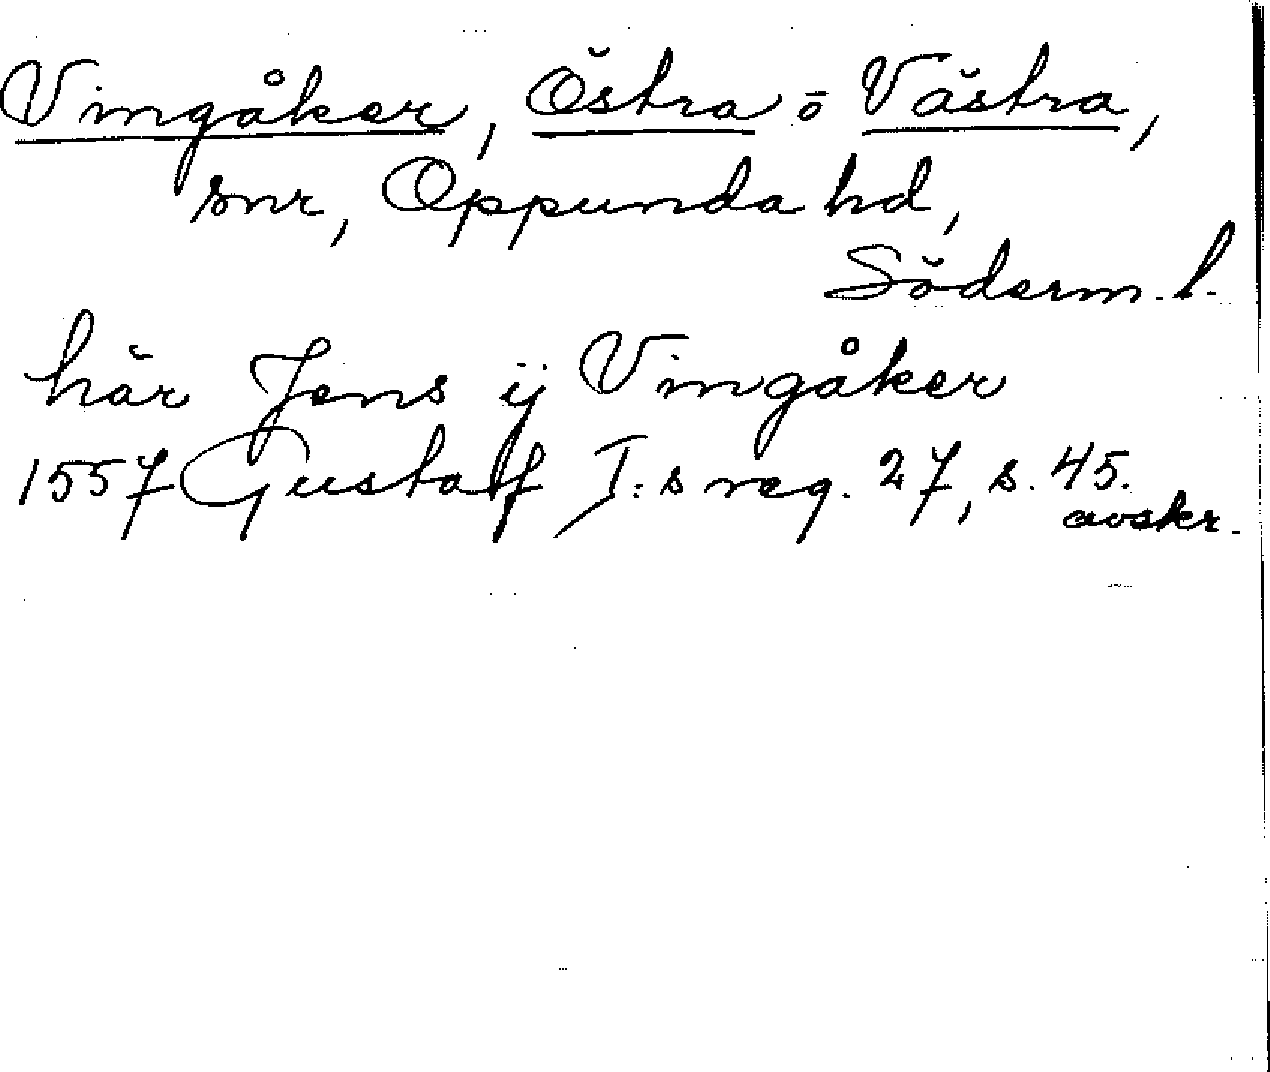 Vingåker, Östra o Västra,
snr, Oppunda hd,
Söderm. l.
här Jens ij Vingåker
1557 Gustaf I:s reg. 27, s. 45.
avskr.